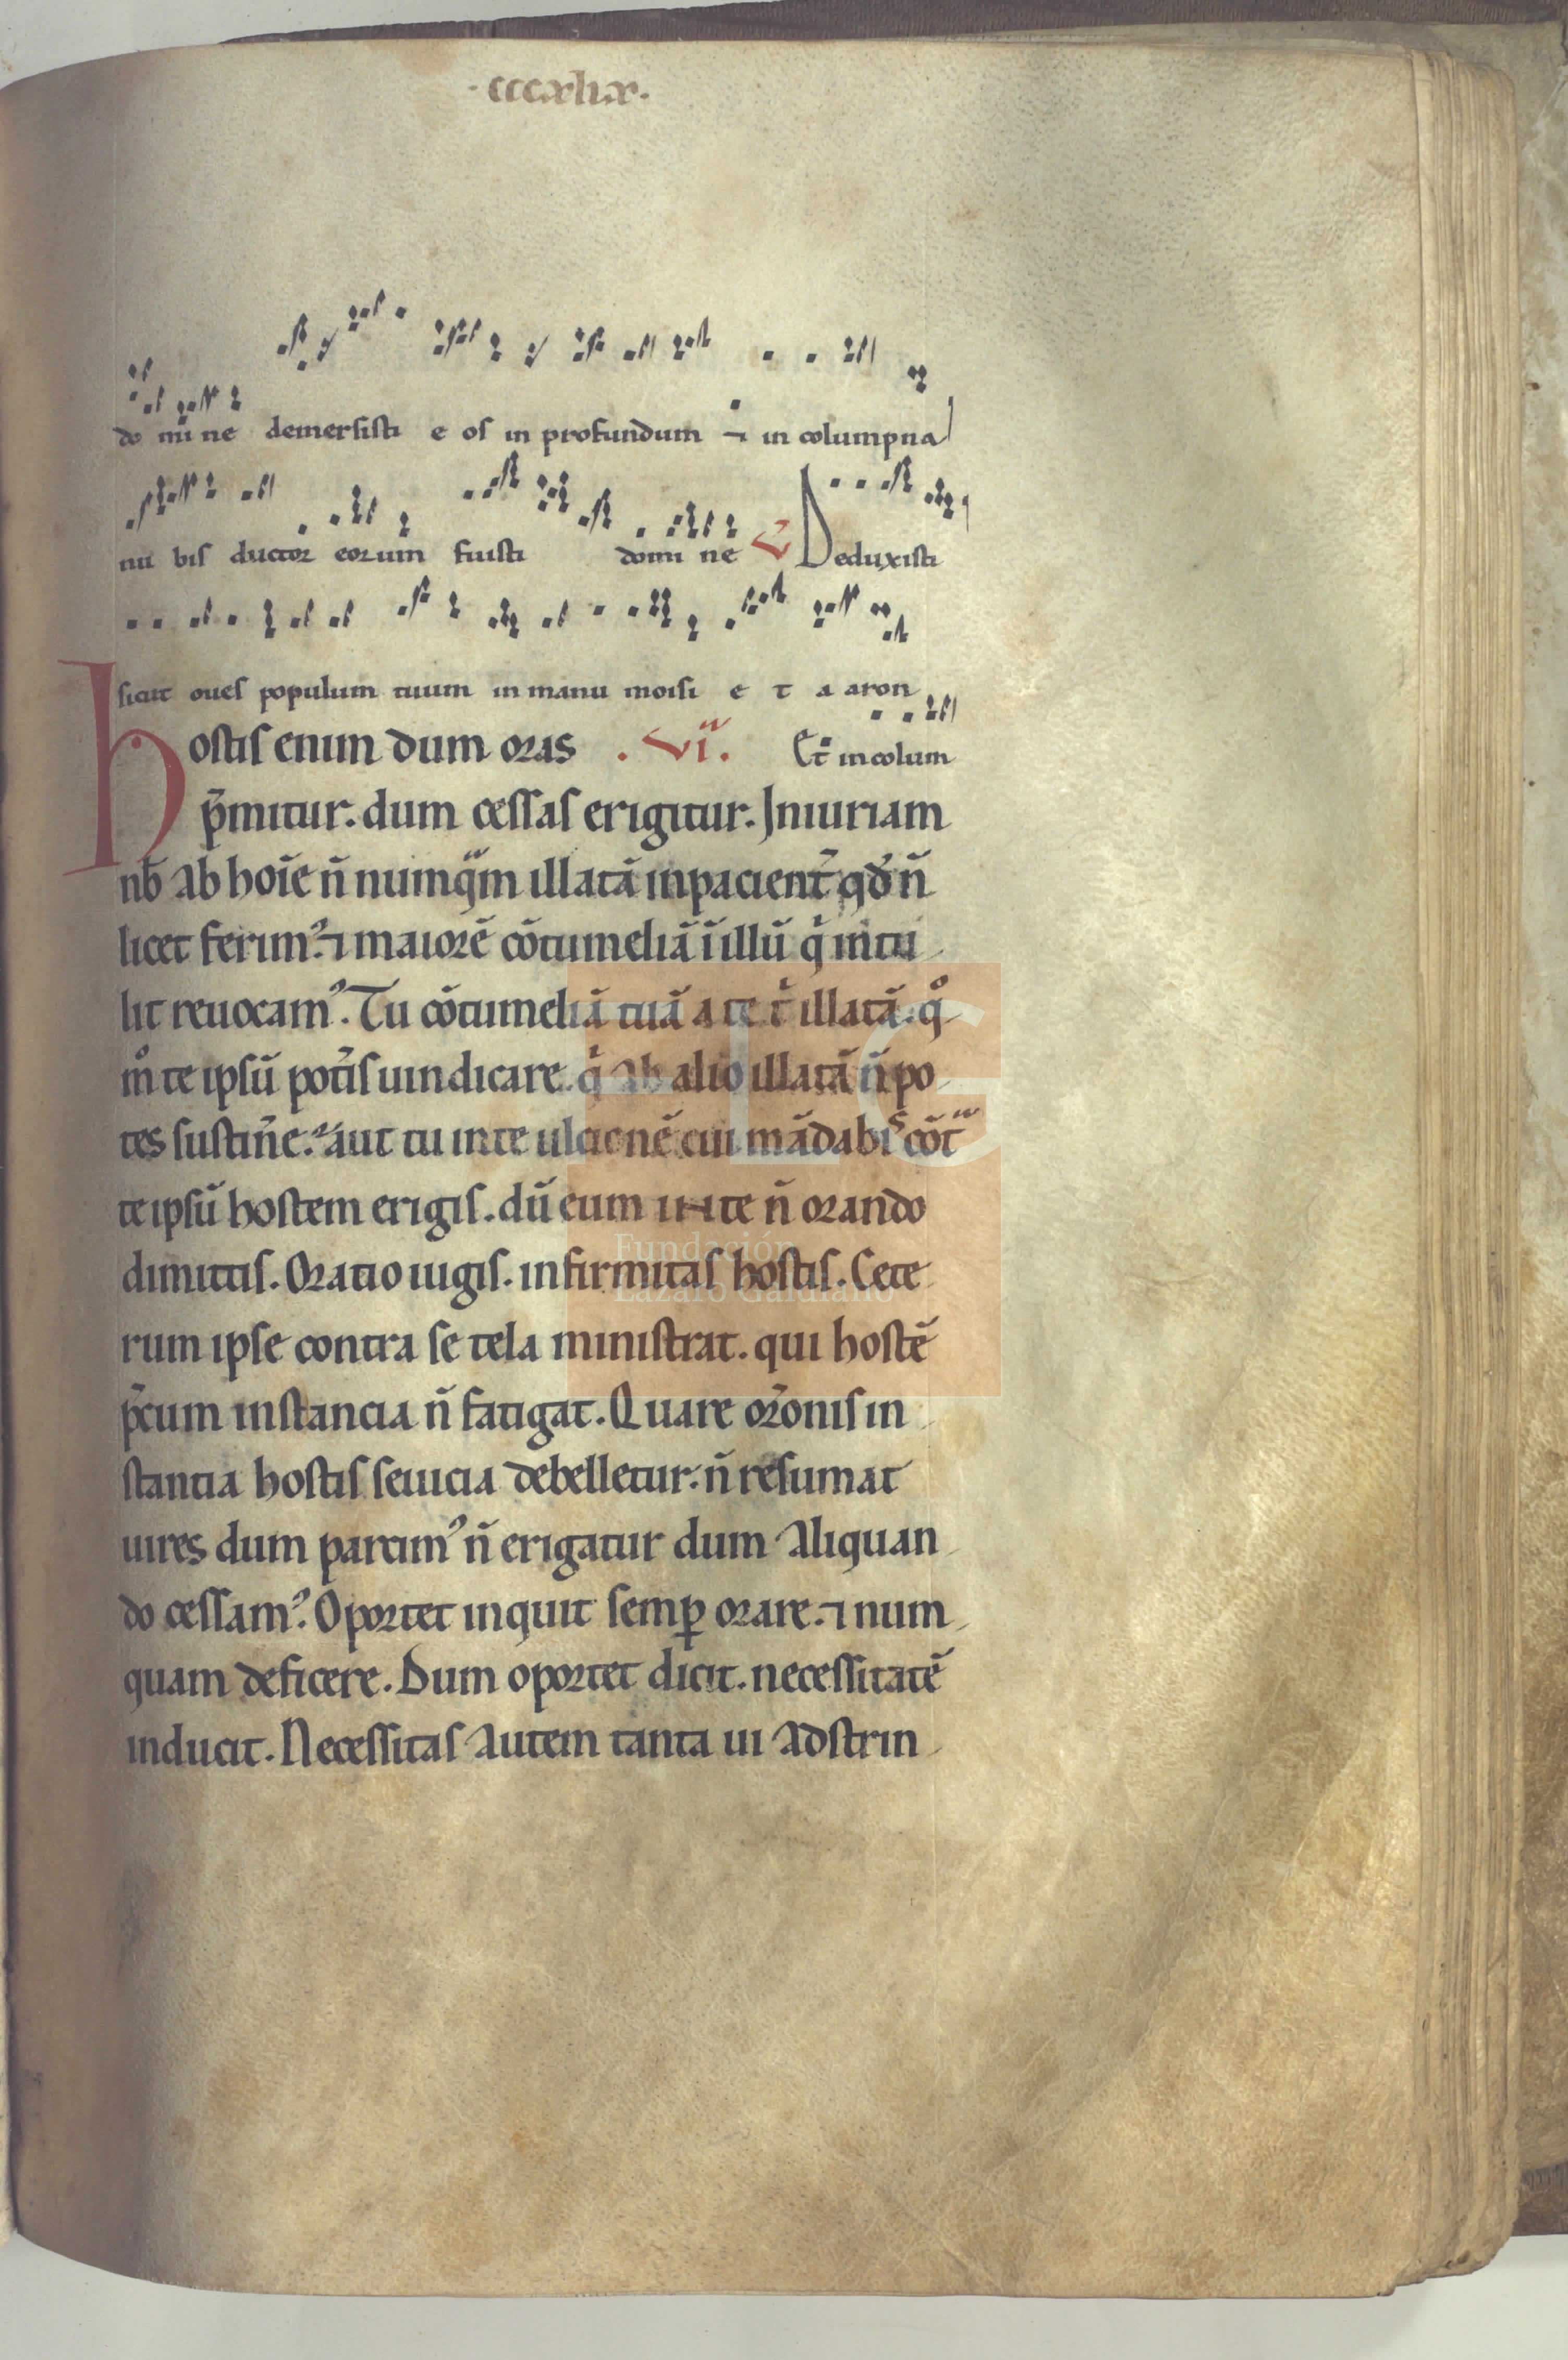 ·cccxlix·
do mi ne demersisti e os in profundum ⁊ in columpna
nu bis ductor eorum fuisti domi ne V̄ Deduxisti
sicut oues populum tuum in manu moisi e t a aron
hostis enim dum oras . vi. Et in colum
p̄mitur. dum cessas erigitur. Iniuriam
nb̄ ab hoīe n̄ numq̄m illatā inpacient̄ qd̄ n̄
licet ferimꝰ. ⁊ maiorē cōtumeliā ī illū qͥ intu
lit reuocamꝰ. Tu cōtumeliā tuā a te tͥ illatā. qͦ
mͦ te ipsū potīs uindicare. qͥ ab alio illatā n̄ po
tes sustin̄e. aut tu in te ulcionē cui mādabis cōtͣ
te ipsū hostem erigis. dū eum in te n̄ orando
dimittis. Oratio iugis. infirmitas hostis. Cete
rum ipse contra se tela ministrat. qui hostē
p̄cum instancia n̄ fatigat. Quare or̄onis in
stantia hostis seuicia debelletur. n̄ resumat
uires dum parcimꝰ n̄ erigatur dum aliquan
do cessamꝰ. Oportet inquit semꝑ orare. ⁊ num
quam deficere. Dum oportet dicit. necessitatē
inducit. Necessitas autem tanta ui adstrin
Fundación
Lázaro Galdiano